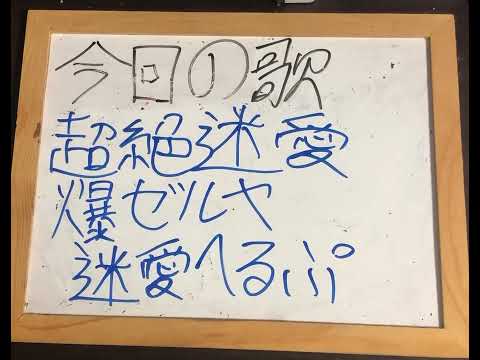 今回の歌
超絶迷愛
爆ゼルヤ
迷愛へるぷ